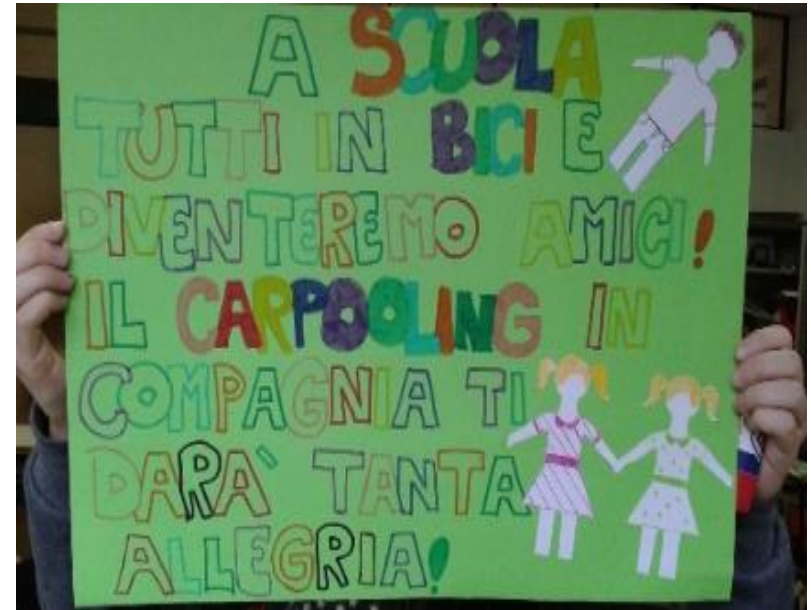 A SCUOLA
TUTTI IN BICI E
DIVENTEREMO AMICI!
IL CARPOOLING IN
COMPAGNIA TI
DARA' TANTA
ALLEGRIA!